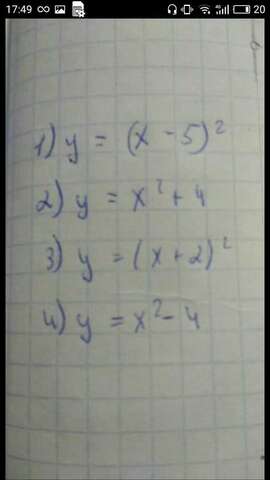 17:49 20
1) y = (x - 5)²
2) y = x² + 4
3) y = (x + 2)²
4) y = x² - 4